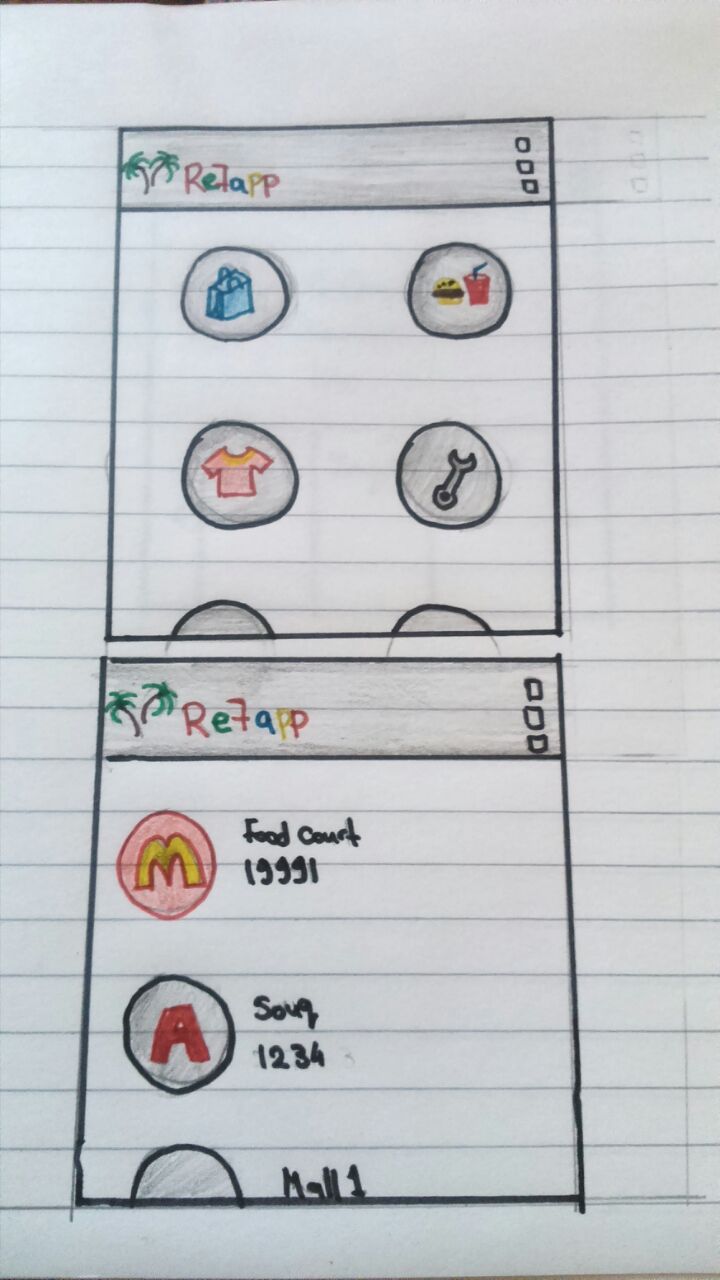 Re7app
Re7app
M
Food Court
19991
A
Souq
1234
Mall 1